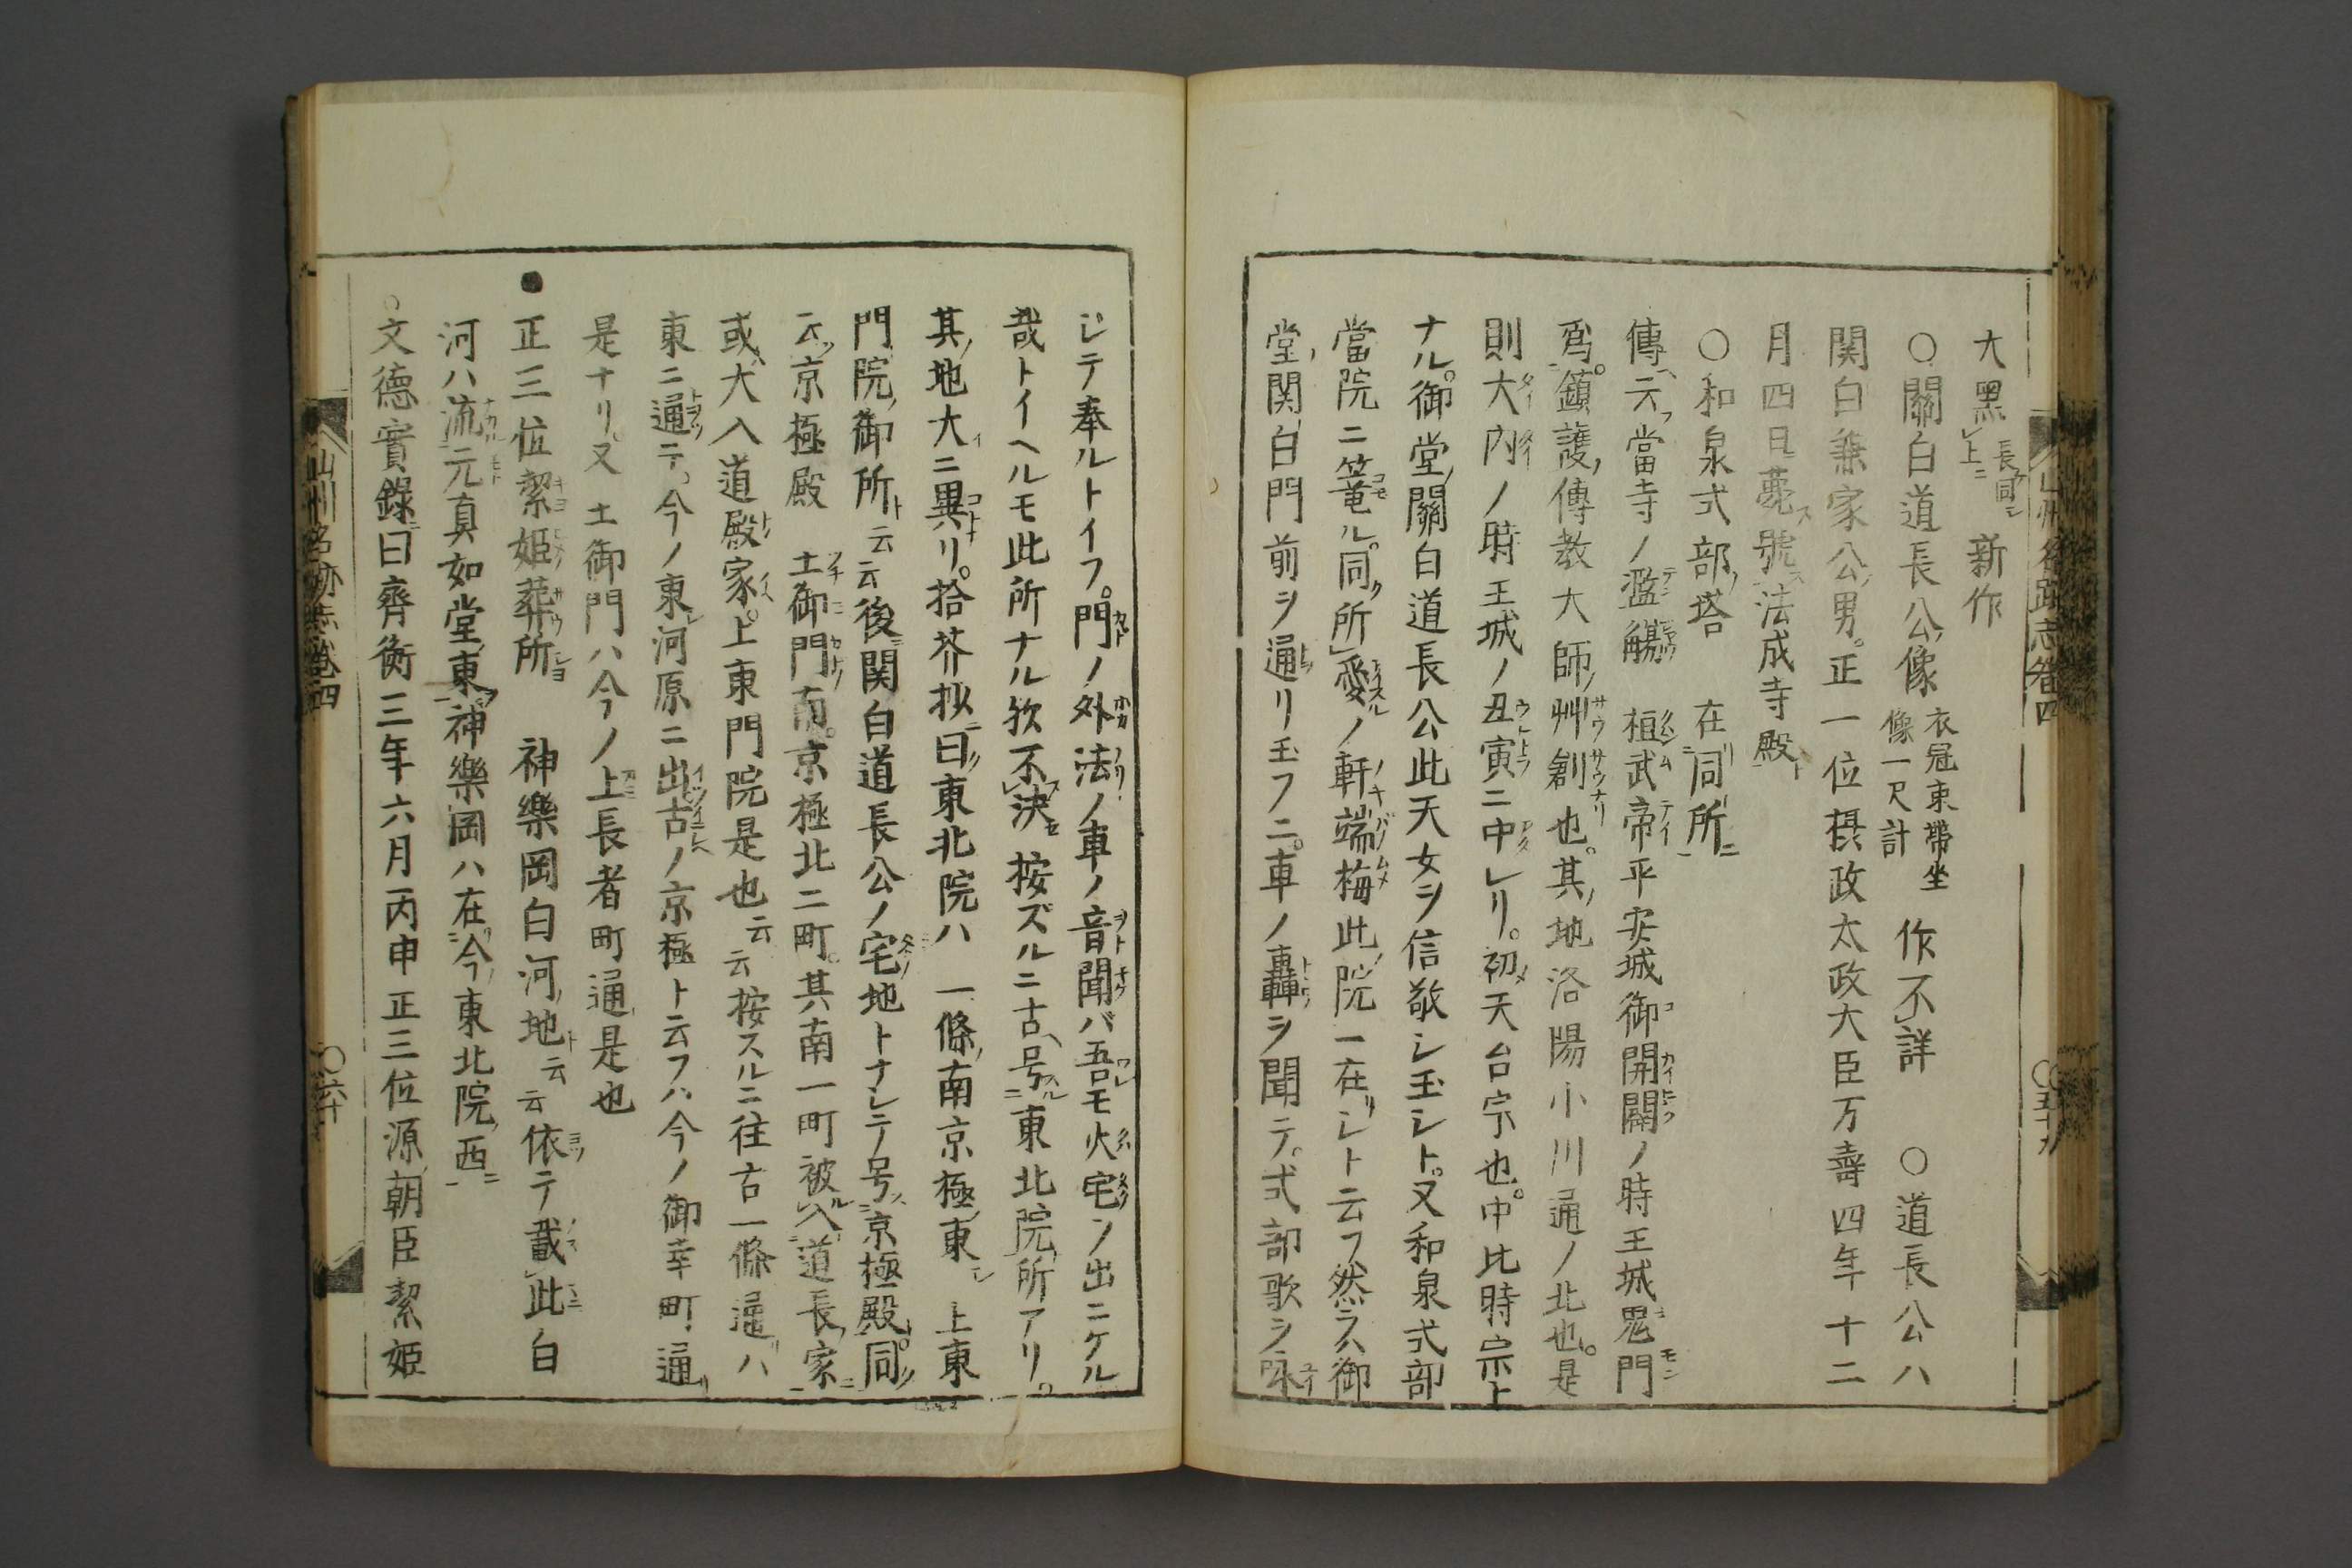 山州名跡志卷四
大黑 長同上 新作
○關白道長公像 衣冠束帶坐像一尺計 作不詳 ○道長公ハ
関白兼家公男。正一位摂政太政大臣万壽四年十二
月四日薨號法成寺殿
○和泉式部塔 在同所
傳云當寺ノ濫觴 桓武帝平安城御開闢ノ時王城鬼門
為鎮護傳教大師艸創也。其地洛陽小川通ノ北也。是
則大内ノ時王城ノ丑寅ニ中レリ。初天台宗也。中比時宗上
ナル。御堂關白道長公此天女ヲ信敬シ玉シト。又和泉式部
當院ニ篭ル。同所愛ノ軒端梅此院ニ在シト云フ然ラハ御
堂関白門前ヲ通リ玉フニ。車ノ轟ヲ聞テ。式部歌ヲ詠
シテ奉ルトイフ。門ノ外法ノ車ノ音聞バ吾モ火宅ヲ出ニケル
哉トイヘルモ此所ナル欤不決 按ズルニ古号東北院所アリ。
其地大ニ異リ。拾芥抄曰東北院ハ一條南京極東 上東
門院御所云云後関白道長公ノ宅地トナシテ号京極殿。同
云京極殿 土御門南。京極北二町。其南一町被入道長家
或大入道殿家。上東門院是也云云按スルニ往古一條通ハ
東ニ通テ。今ノ東河原ニ出古ノ京極ト云フハ今ノ御幸町通
是ナリ。又 土御門ハ今ノ上長者町通是也
●正三位絜姫葬所 神樂岡白河地云云依テ載此白
河ハ流元真如堂東神樂岡ハ在今東北院西
○文德實錄曰齊衡三年六月丙申正三位源朝臣絜姫
山州名跡志卷四
○六十
○五十九